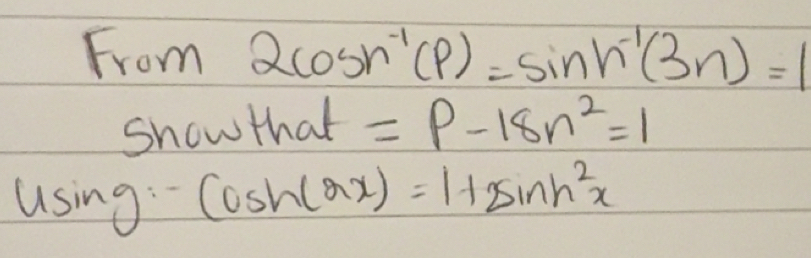 From 2cosh⁻¹(P) = sinh⁻¹(3n) = 1
show that = P - 18n² = 1
Using:- Cosh(2x) = 1+2sinh²x